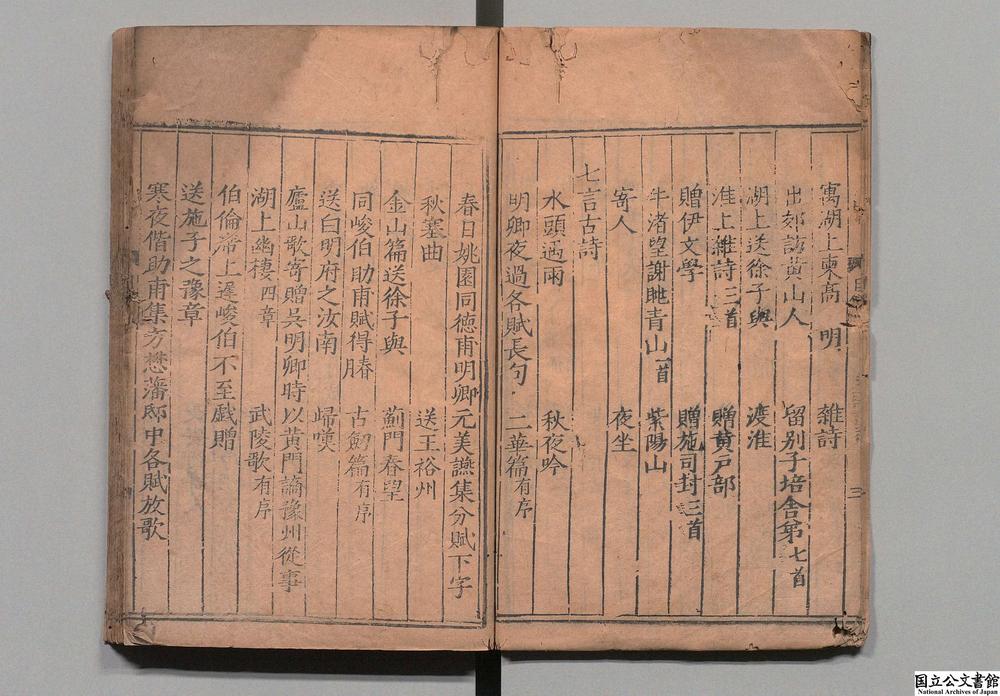 寓湖上柬高　明　雜詩
出郊訪黃山人　留别子培舎弟七首
湖上送徐子與　渡淮
淮上雜詩三首　贈黃戸部
贈伊文學　贈施司封三首
牛渚望謝眺青山一首　紫陽山
寄人　夜坐
七言古詩
水頭遇雨　秋夜吟
明卿夜過各賦長句　二華篇有序
春日姚園同徳甫明卿元美讌集分賦下字
秋塞曲　送王裕州
金山篇送徐子與　薊門春望
同峻伯助甫賦得膓　古劒篇有序
送白明府之汝南　歸嘆
廬山歌寄贈吳明卿時以黃門謫豫州從事
湖上幽棲四章　武陵歌有序
伯倫席上遲峻伯不至戯贈
送施子之豫章
寒夜偕助甫集方懋藩邸中各賦放歌
三
国立公文書館
National Archives of Japan